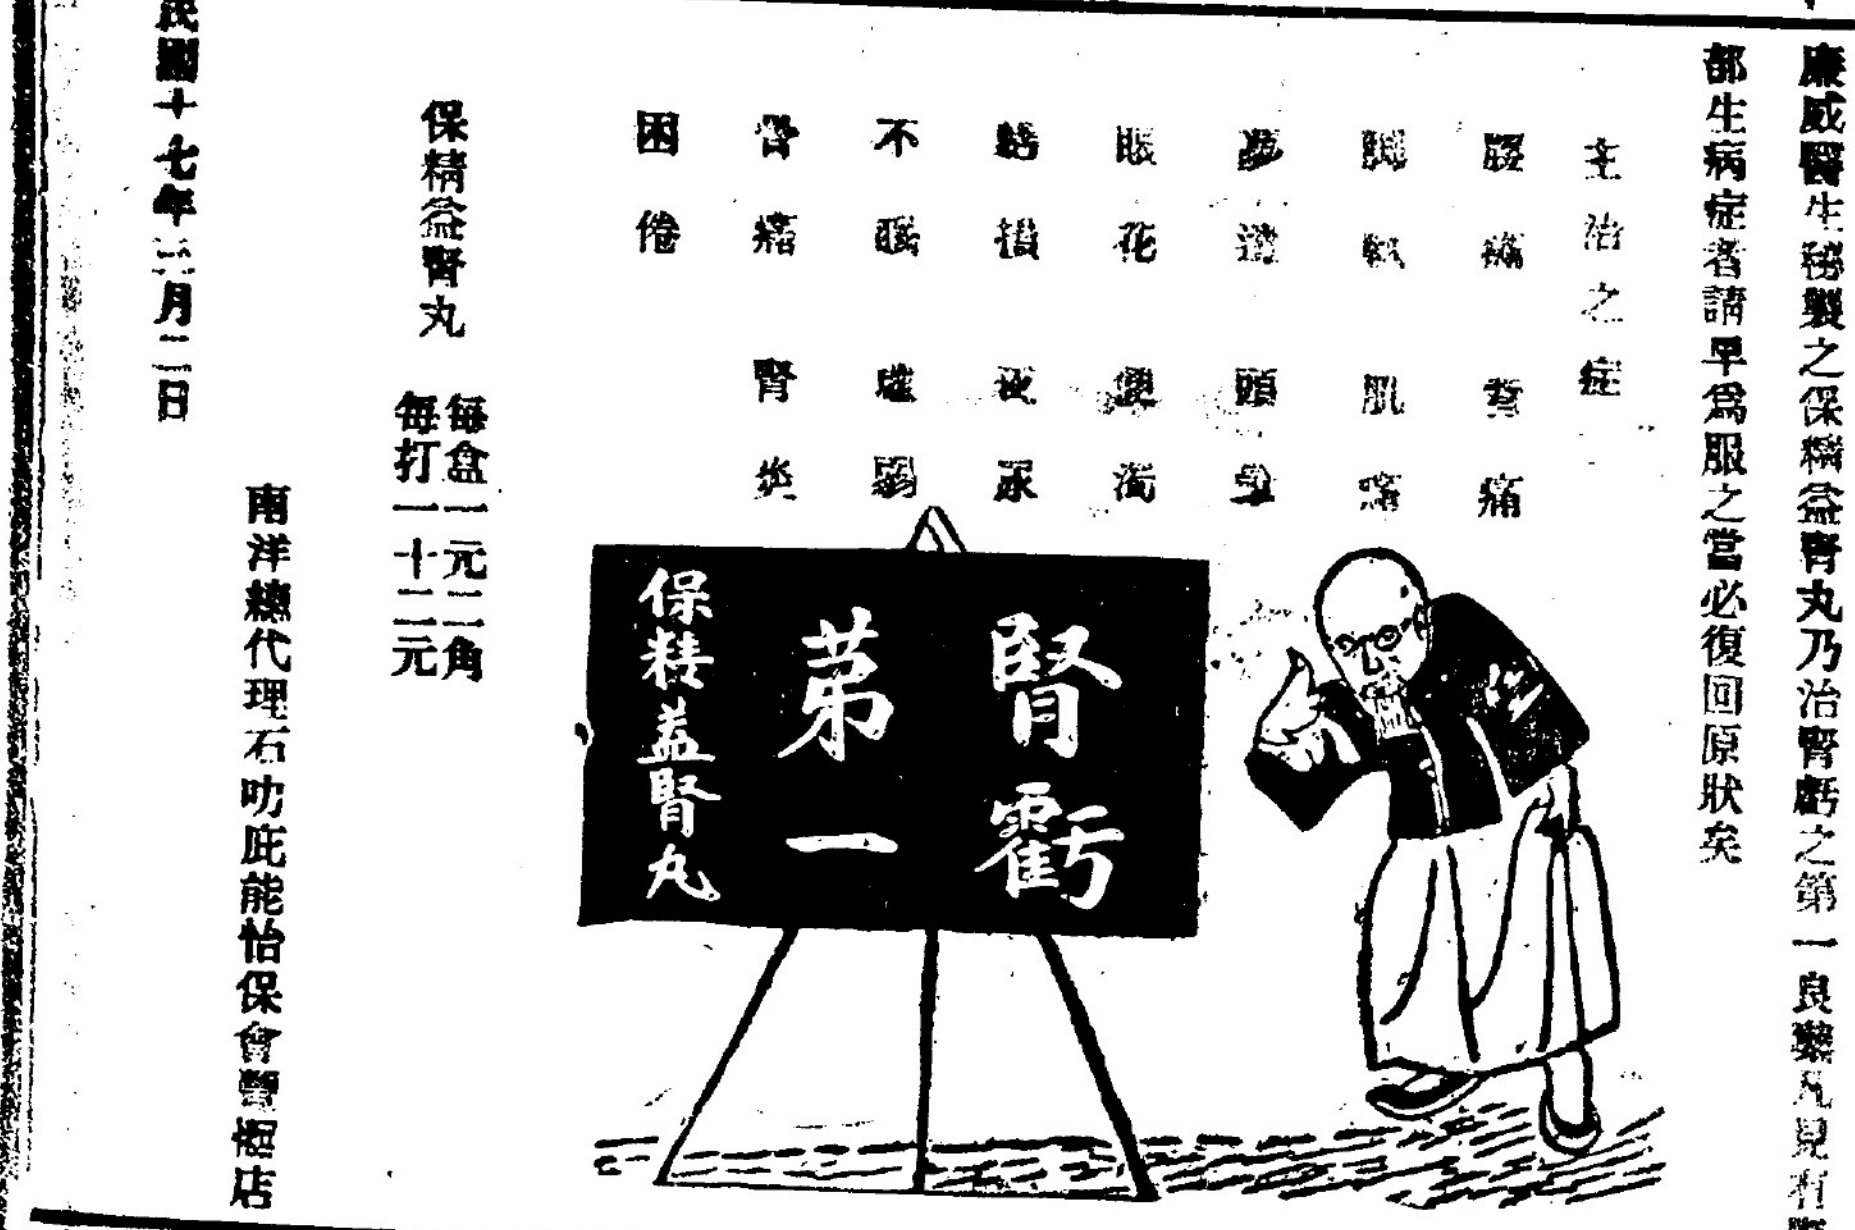 廉威醫生秘製之保精益腎丸乃治腎虧之第一良藥凡見有
都生病症者請早爲服之當必復回原狀矣
主治之症
腰痛 背痛
脚軟 肌痛
夢遺 頭暈
眼花 便濁
夜尿
不眠 虛弱
骨痛 腎炎
困倦
腎虧
第一
保精益腎丸
保精益腎丸
每盒一元二角
每打一十二元
南洋總代理石叻庇能怡保會豐酒店
民國十七年三月二日